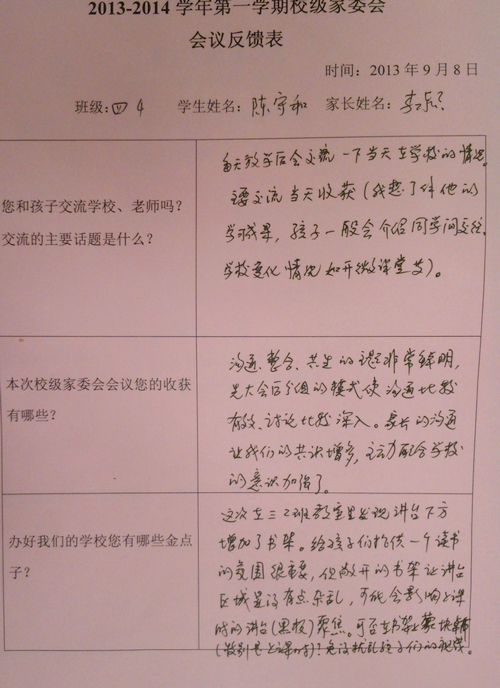 2013-2014 学年第一学期校级家委会
会议反馈表
时间：2013 年 9 月 8 日
班级：四 4 学生姓名：陈宇和 家长姓名：李
您和孩子交流学校、老师吗？
交流的主要话题是什么？
每天放学后会交流一下当天在学校的情况。
主要交流当天收获（我想了解他的
学习成果，孩子一般会介绍同学间交往、
学校变化情况如开微课堂等）。
本次校级家委会会议您的收获
有哪些？
沟通、整合、共生的主题非常鲜明，
先大会后分组的模式使沟通比较
有效、讨论比较深入。家长的沟通
让我们的共识增多，主动配合学校
的意识加强了。
办好我们的学校您有哪些金点
子？
这次在三2班教室里发现讲台下方
增加了书架。给孩子们提供一个读书
的氛围很重要，但敞开的书架让讲台
区域显得有点杂乱，可能会影响上课
时的讲台（黑板）聚焦。可否在书架上蒙块
（特别是上课时）！免得扰乱孩子们的视线。